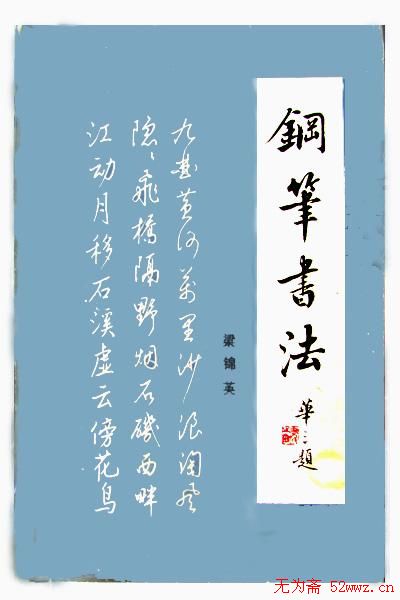 鋼筆書法
華三題
梁锦英
九曲黄河萬里沙浪淘风
隐〻飛橋隔野烟石磯西畔
江动月移石溪虚云傍花鸟
无为斋 52wwz.cn